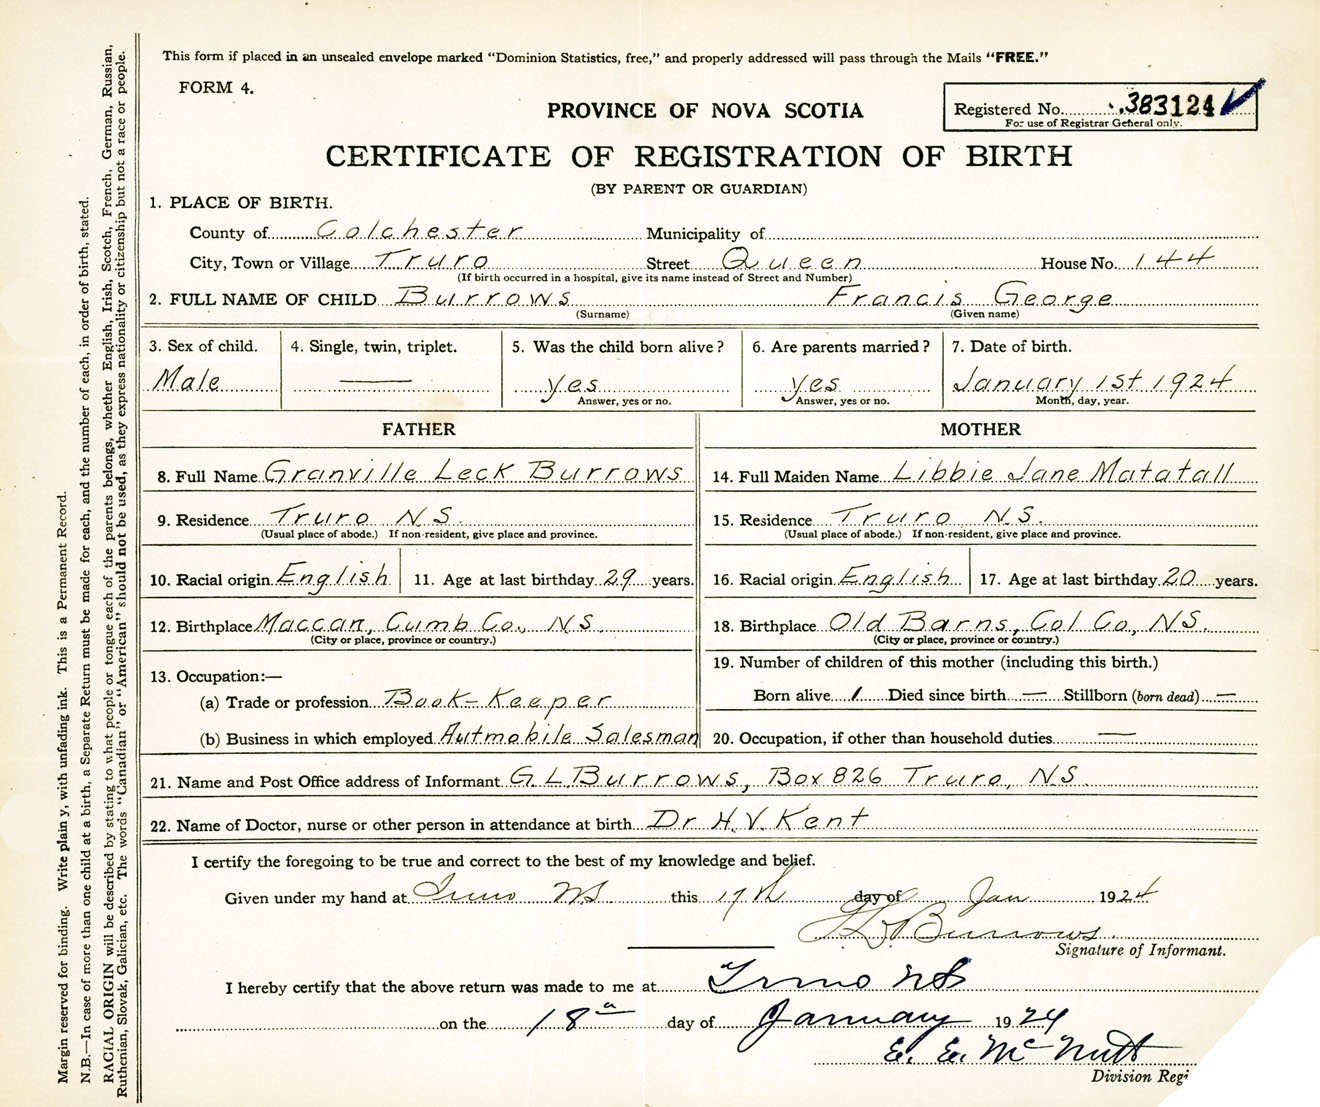 This form if placed in an unsealed envelope marked "Dominion Statistics, free," and properly addressed will pass through the Mails "FREE."
FORM 4.
Registered No. 383124
For use of Registrar General only.
PROVINCE OF NOVA SCOTIA
CERTIFICATE OF REGISTRATION OF BIRTH
(BY PARENT OR GUARDIAN)
1. PLACE OF BIRTH.
County of Colchester Municipality of
City, Town or Village Truro Street Queen House No. 144
(If birth occurred in a hospital, give its name instead of Street and Number)
2. FULL NAME OF CHILD Burrows Francis George
(Surname) (Given name)
3. Sex of child. 4. Single, twin, triplet. 5. Was the child born alive? 6. Are parents married? 7. Date of birth.
Male — yes yes January 1st 1924
Answer, yes or no. Answer, yes or no. Month, day, year.
FATHER MOTHER
8. Full Name Granville Leck Burrows 14. Full Maiden Name Libbie Jane Matatall
9. Residence Truro N.S. 15. Residence Truro N.S.
(Usual place of abode.) If non-resident, give place and province. (Usual place of abode.) If non-resident, give place and province.
10. Racial origin English 11. Age at last birthday 29 years. 16. Racial origin English 17. Age at last birthday 20 years.
12. Birthplace Maccan, Cumb Co., N.S. 18. Birthplace Old Barns, Col Co, N.S.
(City or place, province or country.) (City or place, province or country.)
13. Occupation:— 19. Number of children of this mother (including this birth.)
(a) Trade or profession Book-Keeper Born alive 1 Died since birth — Stillborn (born dead) —
(b) Business in which employed Autmobile Salesman 20. Occupation, if other than household duties —
21. Name and Post Office address of Informant G.L. Burrows, Box 826 Truro, N.S.
22. Name of Doctor, nurse or other person in attendance at birth Dr H.V. Kent
I certify the foregoing to be true and correct to the best of my knowledge and belief.
Given under my hand at Truro NS this 17th day of Jan 1924
G L Burrows
Signature of Informant.
I hereby certify that the above return was made to me at Truro NS
on the 18th day of January 1924
E. E. McNutt
Division Regi
Margin reserved for binding. Write plain y, with unfading ink. This is a Permanent Record.
N.B.—In case of more than one child at a birth, a Separate Return must be made for each, and the number of each, in order of birth, stated.
RACIAL ORIGIN will be described by stating to what people or tongue each of the parents belongs, whether English, Irish, Scotch, French, German, Russian,
Ruthenian, Slovak, Galician, etc. The words "Canadian" or "American" should not be used, as they express nationality or citizenship but not a race or people.